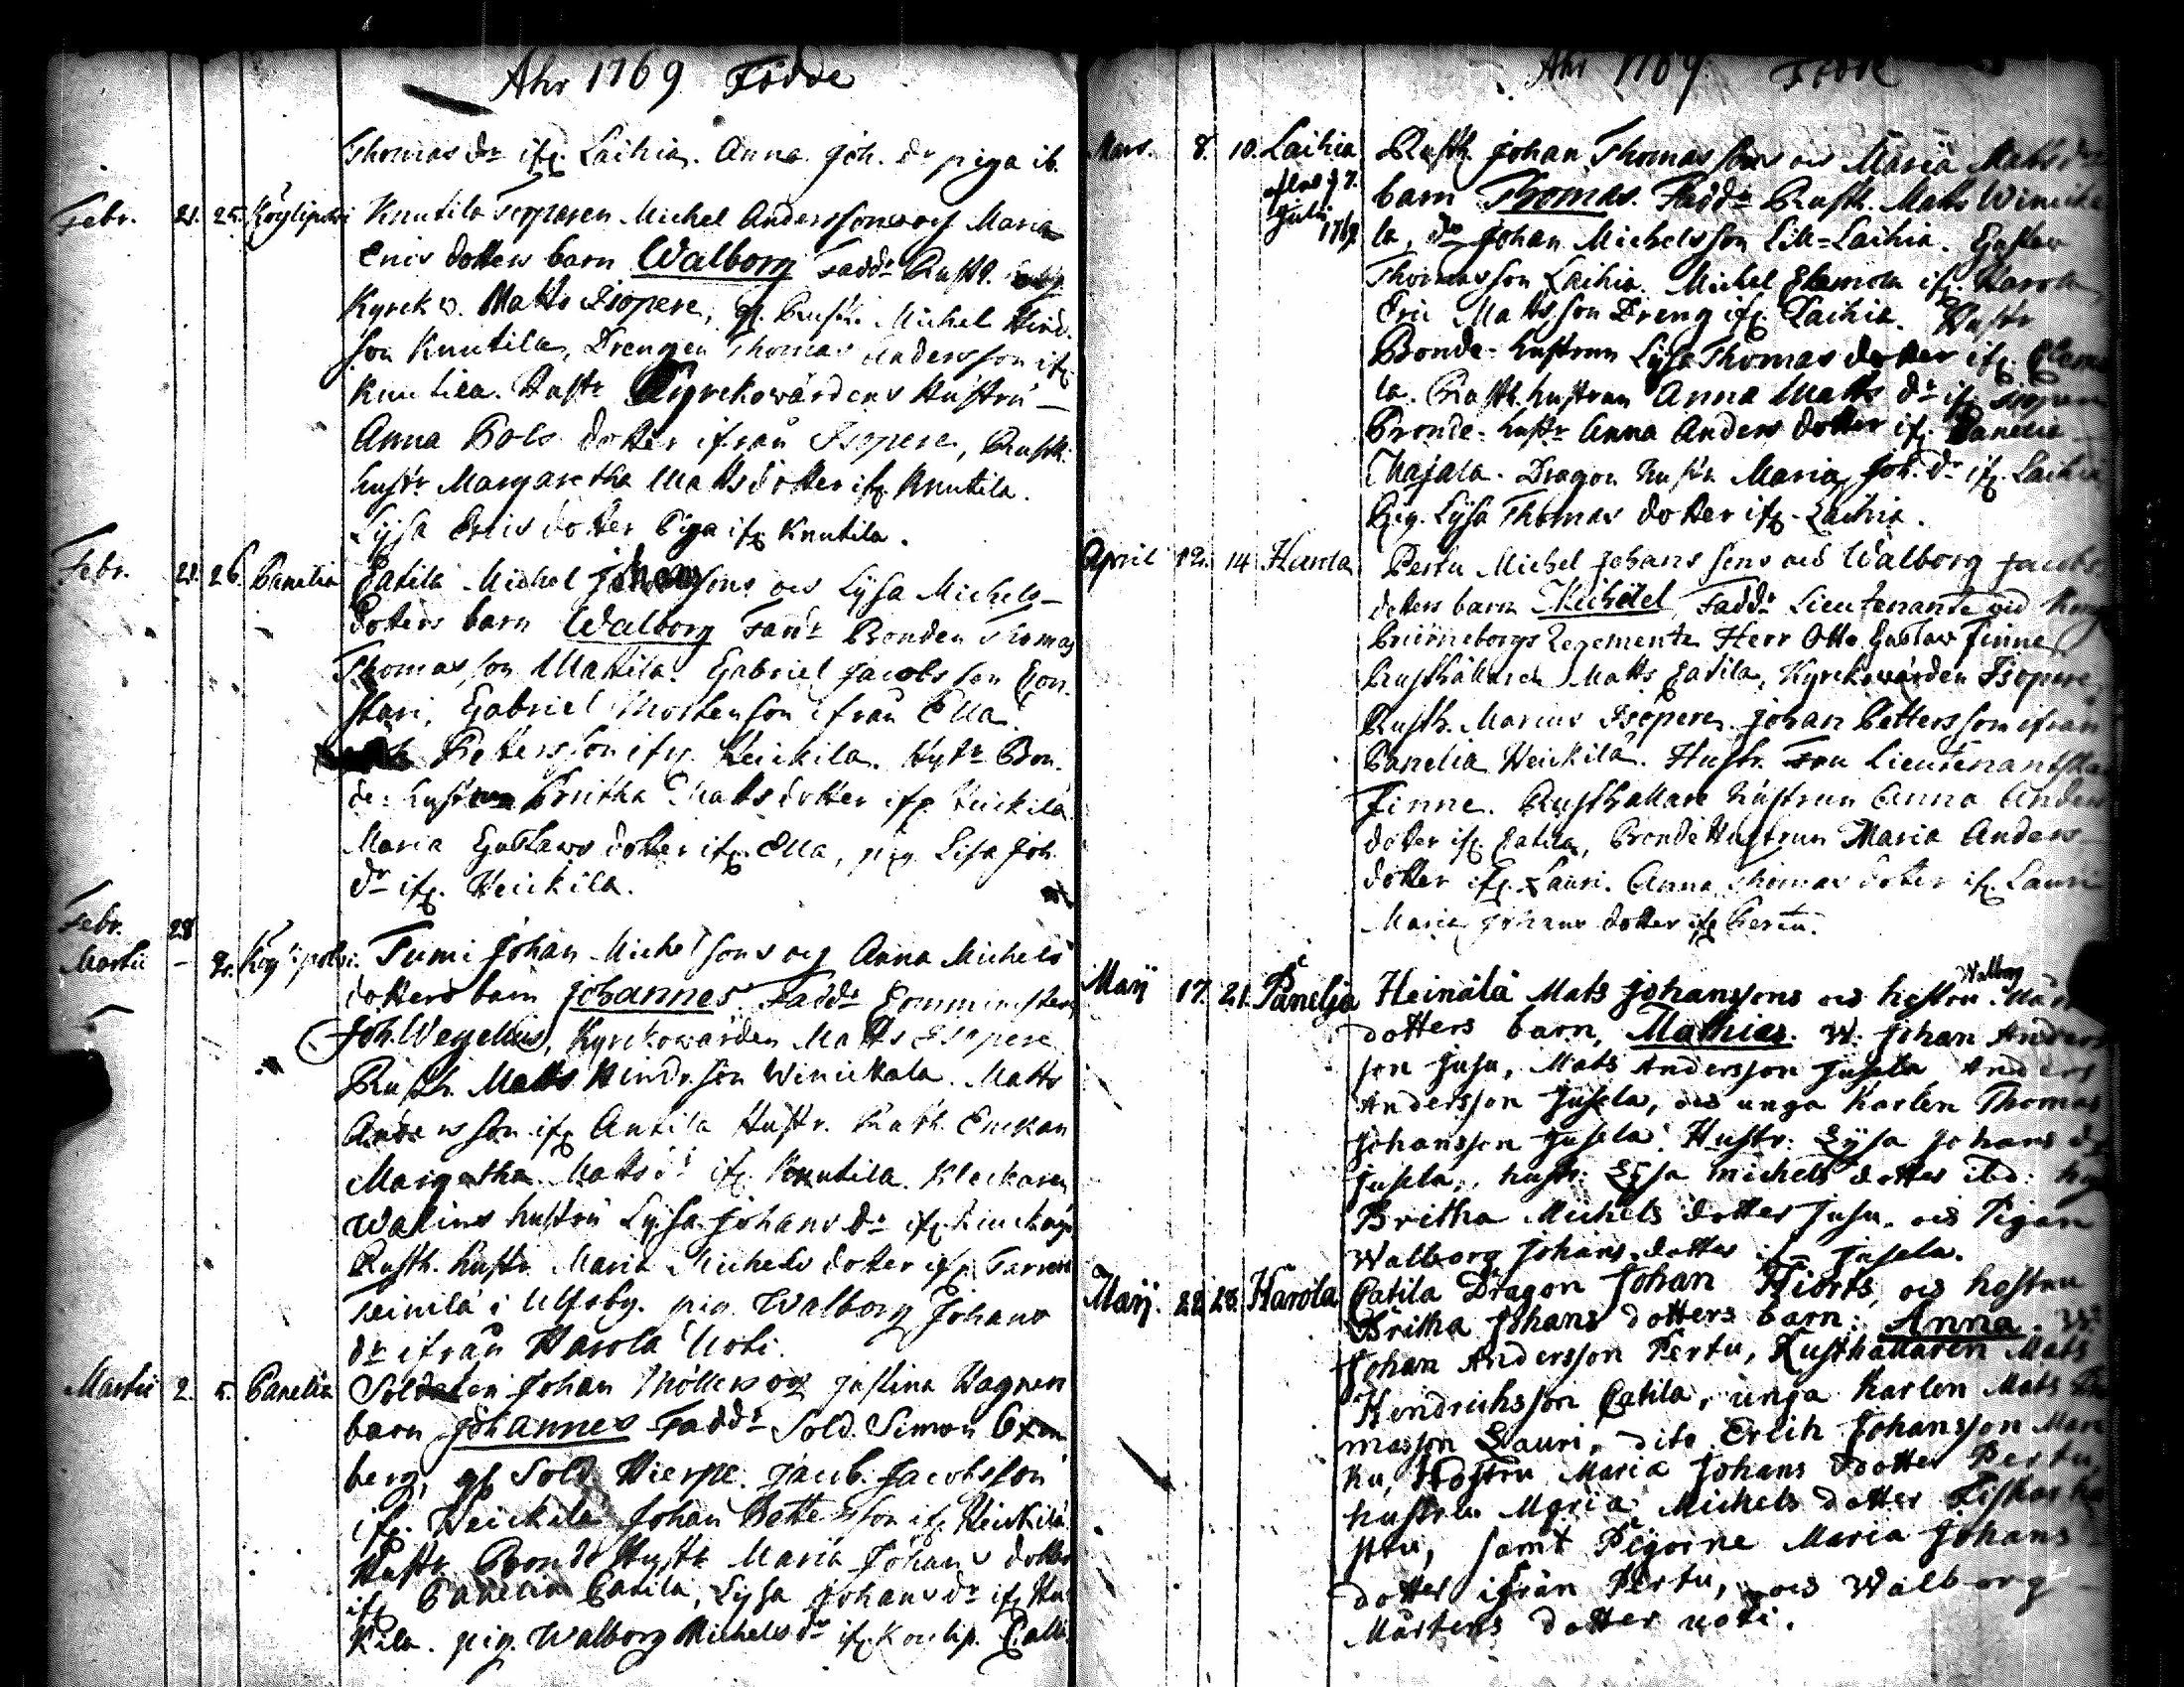 Ahr 1769 Födde
Thomas dr ifr. Laihia. Anna Joh. dr piga ib.
Febr. 21. 25. Köylipolvi Knutila Torparen Michel Anderssons och Maria
Erics dotters barn Walborg Faddr Rusth.
Kyrck w. Matts Isopere, gl. Rusth. Michel Hind.
son Knutila, Drengen Thomas Andersson ifr
Knutila. Hustr Kyrckowärdens Hustru
Anna Pols dotter ifrån Isopere, Rusth.
hustr Margaretha Matts dotter ifr Knutila.
Lysa Erics dotter Piga ifr Knutila.
Febr. 21. 26. Panelia Eatila Michel Johanssons och Lysa Michels
dotters barn Walborg Faddr Bonden Thomas
Thomasson Mattila. Gabriel Jacobsson
Gabriel Mortenson ifrån Ella.
Pettersson ifr. Heickila. Hustr Bon.
de hustrun Britha Matts dotter ifr Heickila
Maria Gustaws dotter ifr. Ella, pig. Lisa Joh.
dr ifr. Heickila.
Febr. 28
Martii - 2. Köylipolvi. Tumi Johan Michelsons och Anna Michels
dotters barn Johannes Faddr Comminister
Joh. Wegelius, Kyrckowärden Matts Isopere
Rusth. Matts Hindr.son Winickala. Matts
Andersson ifr Antila Hustr. Rusth. Enckan
Margetha Matts dr ifr. Knutila. Klockaren
Walins hustru Lysa Johans dr ifr.
Rusth. hustr Maria Michels dotter ifr
i Ulfsby. pig. Walborg Johans
dr ifrån Harola Uoti.
Martii 2. 5. Panelia Soldaten Johan Möllers och Justina Wagners
barn Johannes Faddr Sold. Simon Oxen
berg, gl Sold Hierpe. Jacob Jacobsson
ifr. Heickila Johan Pettersson ifr Heickila.
Hustr Bonde Hustr Maria Johans dotter
ifr Panelia Eatila, Lysa Johans dr ifr Hei
kila. pig. Walborg Michels dr ifr Köylip.
Ahr 1769 Födde
Mars. 8. 10. Laihia Rusth. Johan Thomassons och Maria Matts
Julii 1769 barn Thomas. Faddr Rusth. Matts Winicka
la, do Johan Michelsson Lill=Laihia. Gustav
Thomasson Laihia. Michel ifr. Harola
Eric Mattsson Dreng ifr. Laihia. Hustr
Bonde-hustrun Lysa Thomas dotter ifr.
la. Rusth. hustrun Anna Matts dr ifr Isopere
Bonde-hustr Anna Anders dotter ifr. Panelia
Majala. Dragon hustr. Maria Joh. dr ifr. Laihia
Pig. Lysa Thomas dotter ifr. Laihia.
April 12. 14 Harola Pertu Michel Johanssons och Walborg Jacobs
dotters barn Michael Faddr Lieutenante vid
Biörneborgs Regemente Herr Otto Gustav Finne
Rusthållaren Matts Eatila, Kyrckowärden Isopere,
Rusth. Marcus Isopere. Johan Pettersson ifrån
Panelia Heickila. Hustr. Fru Lieutenantskan
Finne. Rusthållare hustrun Anna Anders
dotter ifr. Eatila, Bonde Hustrun Maria Anders
dotter ifr. Lauri. Anna Thomas dotter ifr. Lauri
Maria Johans dotter ifr Pertu.
Maij 17. 21. Panelja Heinälä Mats Johanssons och hustru Walborg
dotters barn, Mathias. W. Johan Anders
son Jusu, Mats Andersson Jusela Anders
Andersson Jusela, och unga Karlen Thomas
Johansson Jusela. Hustr: Lysa Johans dr
Jusela, hustr: Lysa Michels dotter ibd:
Britha Michels dotter Jusu, och Pigan
Walborg Johans dotter if Jusela.
Maij. 22 28. Harola Eatila Dragon Johan Hiorts, och hustru
Britha Johans dotters barn: Anna. W:
Johan Andersson Pertu, Rusthållaren Mats
Hindrichsson Eatila, unga Karlen Mats Tho
masson Lauri, dito Erich Johansson
Hustru Maria Johans dotter Pertu,
hustrun Maria Michels dotter
samt Pigorne Maria Johans
dotter ifrån Pertu, och Walborg
Mårtens dotter uoti.